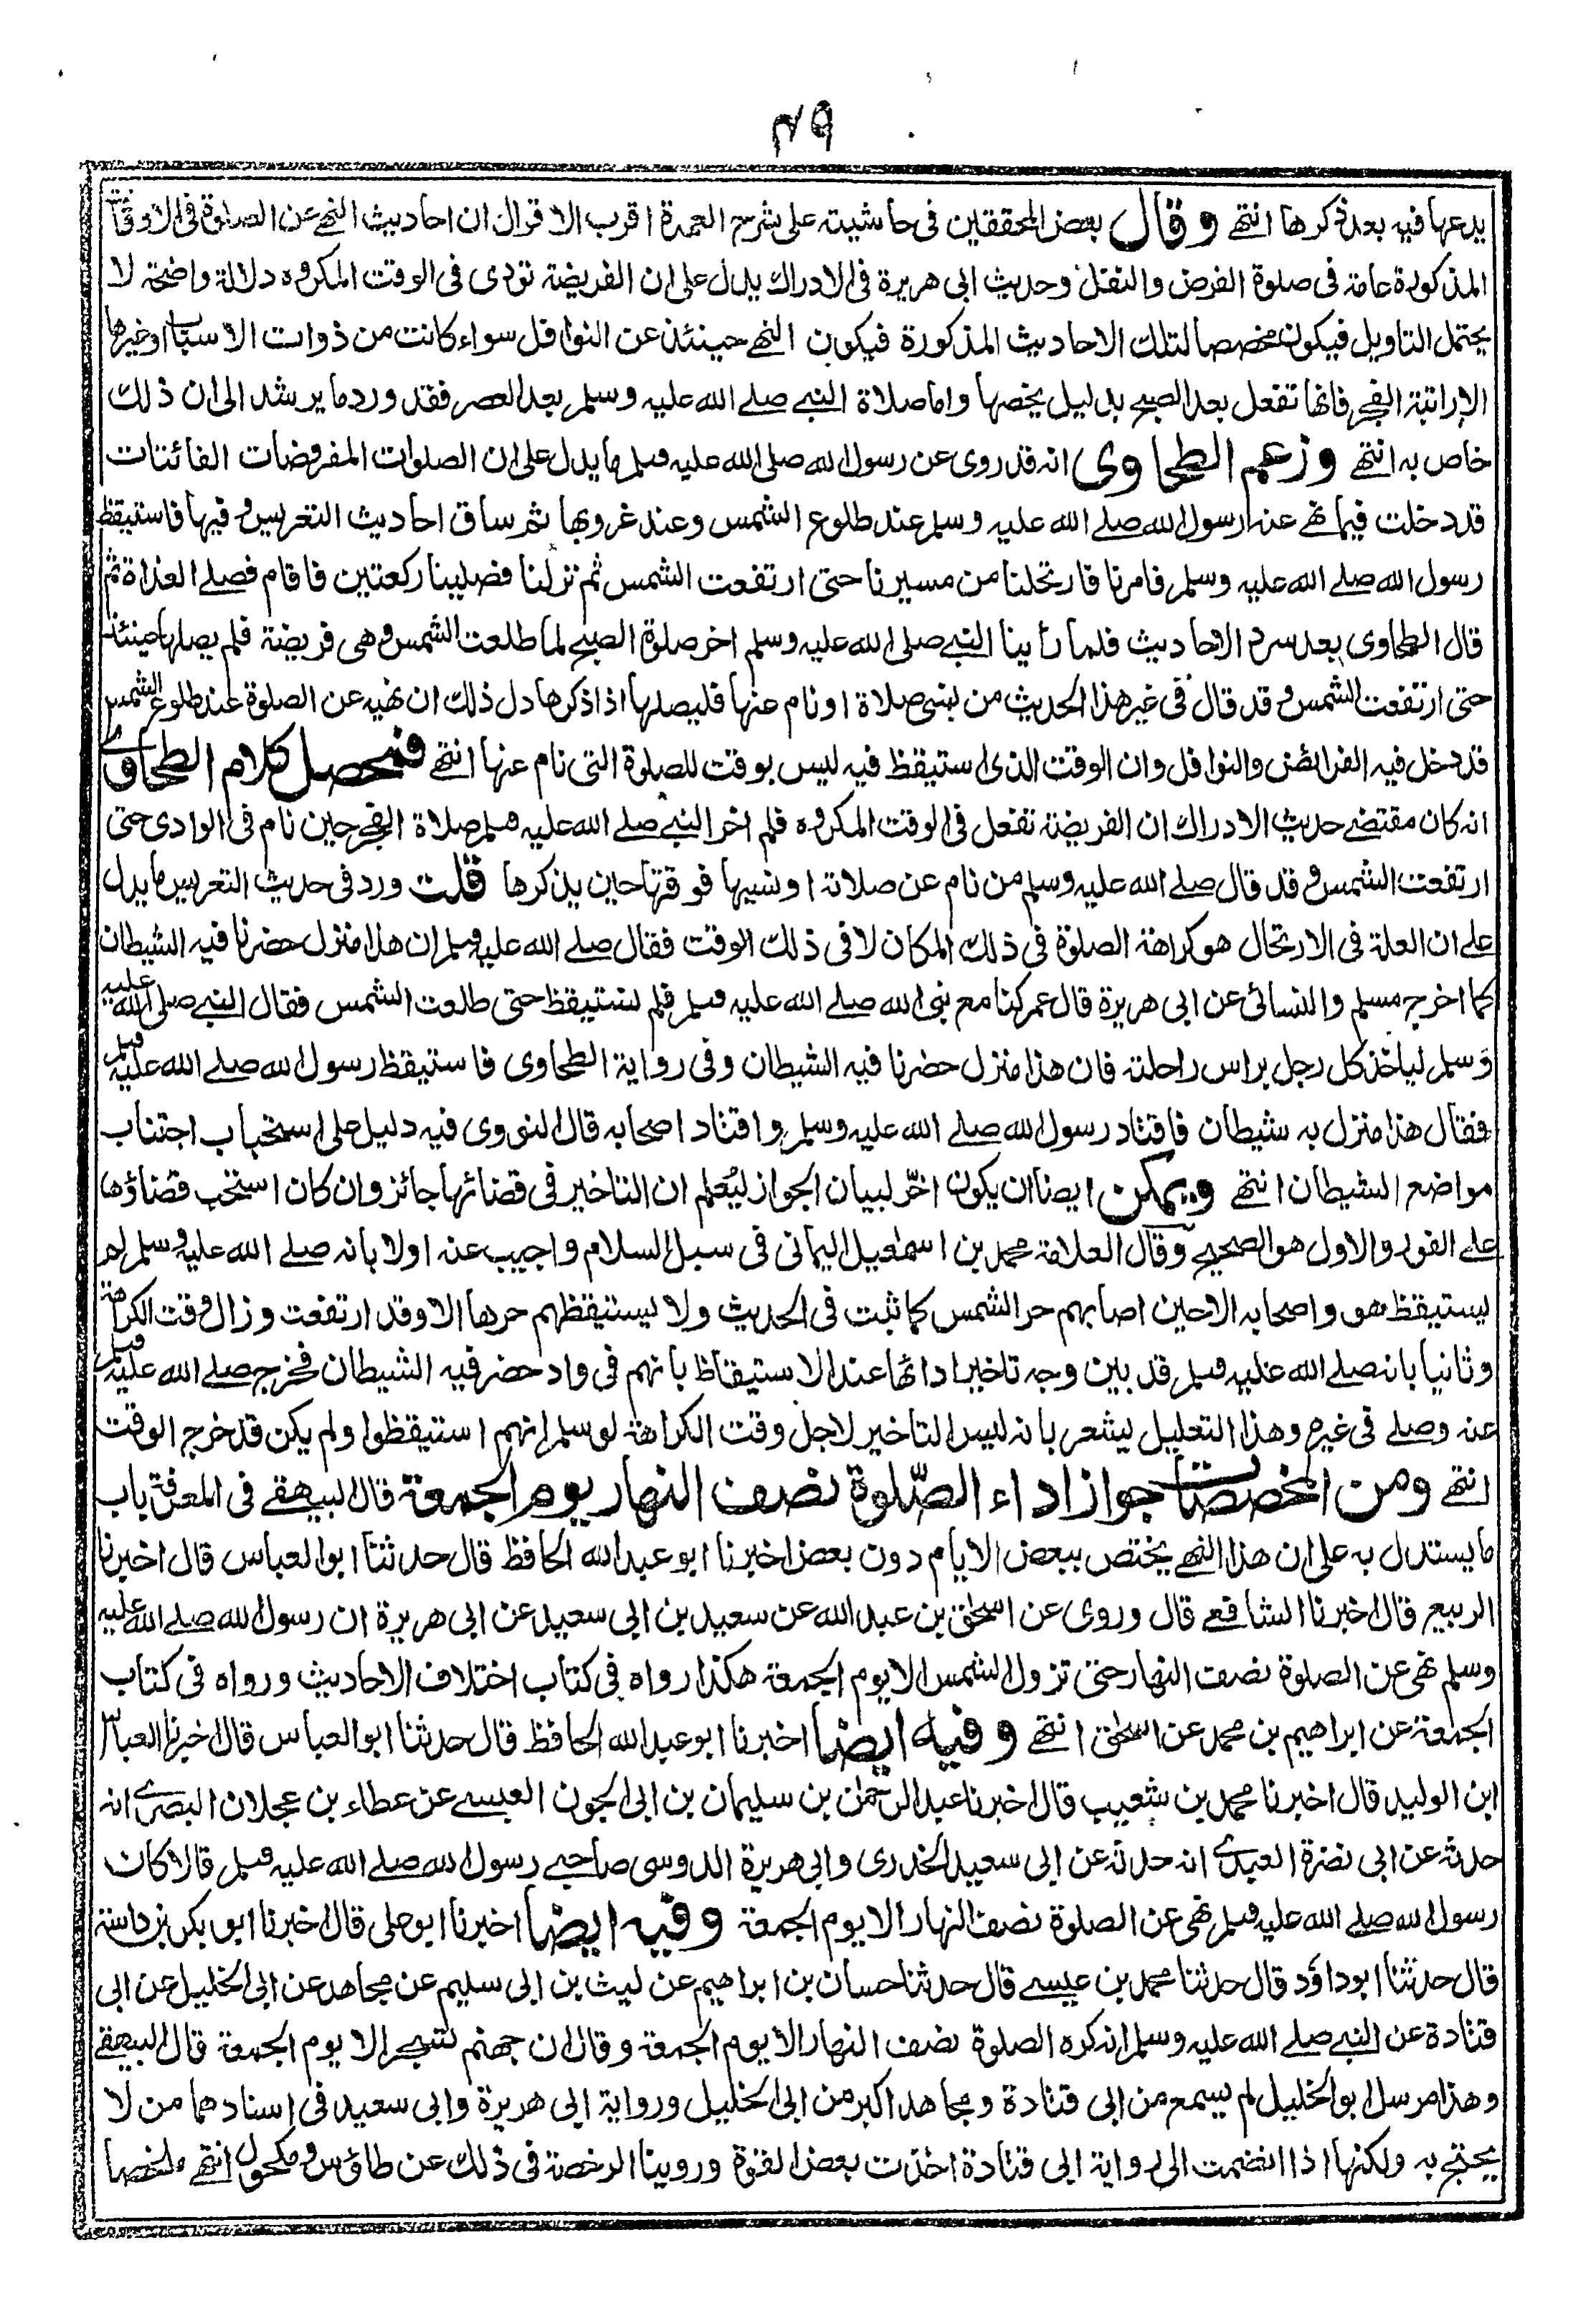 ٤٩
يدعها فيه بعد ذكرها انتهى وقال بعض المحققين فى حاشيته على شرح العمدة اقرب الاقوال ان احاديث النهى عن الصلوة فى الاوقات
المذكورة عامة فى صلوة الفرض والنفل وحديث ابى هريرة فى الادراك يدل على ان الفريضة تؤدى فى الوقت المكروه دلالة واضحة لا
يحتمل التاويل فيكون مخصصا لتلك الاحاديث المذكورة فيكون النهى حينئذ عن النوافل سواء كانت من ذوات الاسباب او غيرها
الا راتبة الفجر فانها تفعل بعد الصبح بدليل يخصها واما صلاة النبى صلى الله عليه وسلم بعد العصر فقد ورد ما يرشد الى ان ذلك
خاص به انتهى وزعم الطحاوى انه قد روى عن رسول الله صلى الله عليه وسلم ما يدل على ان الصلوات المفروضات الفائتات
قد دخلت فيما نهى عنه رسول الله صلى الله عليه وسلم عند طلوع الشمس وعند غروبها ثم ساق احاديث التعريس وفيها فاستيقظ
رسول الله صلى الله عليه وسلم فامرنا فارتحلنا من مسيرنا حتى ارتفعت الشمس ثم نزلنا فصلينا ركعتين فاقام فصلى الغداة ثم
قال الطحاوى بعد سرد الاحاديث فلما رأينا النبى صلى الله عليه وسلم اخر صلوة الصبح لما طلعت الشمس وهى فريضة فلم يصلها حينئذ
حتى ارتفعت الشمس وقد قال فى غير هذا الحديث من نسى صلاة او نام عنها فليصلها اذا ذكرها دل ذلك ان نهيه عن الصلوة عند طلوع الشمس
قد دخل فيه الفرائض والنوافل وان الوقت الذى استيقظ فيه ليس بوقت للصلوة التى نام عنها انتهى فتحصل كلام الطحاوى
انه كان مقتضى حديث الادراك ان الفريضة تفعل فى الوقت المكروه فلم اخر النبى صلى الله عليه وسلم صلاة الفجر حين نام فى الوادى حتى
ارتفعت الشمس وقد قال صلى الله عليه وسلم من نام عن صلاته او نسيها فوقتها حين يذكرها قلت ورد فى حديث التعريس ما يدل
على ان العلة فى الارتحال هو كراهة الصلوة فى ذلك المكان لا فى ذلك الوقت فقال صلى الله عليه وسلم ان هذا منزل حضرنا فيه الشيطان
كما اخرج مسلم والنسائى عن ابى هريرة قال عرسنا مع نبى الله صلى الله عليه وسلم فلم نستيقظ حتى طلعت الشمس فقال النبى صلى الله عليه
وسلم لياخذ كل رجل براس راحلته فان هذا منزل حضرنا فيه الشيطان وفى رواية الطحاوى فاستيقظ رسول الله صلى الله عليه وسلم
فقال هذا منزل به شيطان فاقتاد رسول الله صلى الله عليه وسلم واقتاد اصحابه قال النووى فيه دليل على استحباب اجتناب
مواضع الشيطان انتهى ويمكن ايضا ان يكون اخّر لبيان الجواز ليُعلم ان التاخير فى قضائها جائز وان كان استحب قضاؤها
على الفور والاول هو الصحيح وقال العلامة محمد بن اسمعيل اليمانى فى سبل السلام واجيب عنه اولا بانه صلى الله عليه وسلم لم
يستيقظ هو واصحابه الا حين اصابهم حر الشمس كما ثبت فى الحديث ولا يستيقظهم حرها الا وقد ارتفعت وزال وقت الكراهة
وثانيا بانه صلى الله عليه وسلم قد بين وجه تاخير ادائها عند الاستيقاظ بانهم فى واد حضر فيه الشيطان فخرج صلى الله عليه وسلم
عنه وصلى فى غيره وهذا التعليل يشعر بانه ليس التاخير لاجل وقت الكراهة لو سلم انهم استيقظوا ولم يكن قد خرج الوقت
انتهى ومن المخصصات جواز اداء الصّلوة نصف النهار يوم الجمعة قال البيهقى فى المعرفة باب
ما يستدل به على ان هذا النهى يختص ببعض الايام دون بعض اخبرنا ابو عبد الله الحافظ قال حدثنا ابو العباس قال اخبرنا
الربيع قال اخبرنا الشافعى قال وروى عن اسحق بن عبد الله عن سعيد بن ابى سعيد عن ابى هريرة ان رسول الله صلى الله عليه
وسلم نهى عن الصلوة نصف النهار حتى تزول الشمس الا يوم الجمعة هكذا رواه فى كتاب اختلاف الاحاديث ورواه فى كتاب
الجمعة عن ابراهيم بن محمد عن اسحق انتهى وفيه ايضا اخبرنا ابو عبد الله الحافظ قال حدثنا ابو العباس قال اخبرنا العباس
ابن الوليد قال اخبرنا محمد بن شعيب قال اخبرنا عبد الرحمن بن سليمان بن ابى الجون العبسى عن عطاء بن عجلان البصرى انه
حدثه عن ابى نضرة العبدى انه حدثه عن ابى سعيد الخدرى وابى هريرة الدوسى صاحبى رسول الله صلى الله عليه وسلم قالا كان
رسول الله صلى الله عليه وسلم نهى عن الصلوة نصف النهار الا يوم الجمعة وفيه ايضا اخبرنا ابو على قال اخبرنا ابو بكر بن داسة
قال حدثنا ابو داؤد قال حدثنا محمد بن عيسى قال حدثنا حسان بن ابراهيم عن ليث بن ابى سليم عن مجاهد عن ابى الخليل عن ابى
قتادة عن النبى صلى الله عليه وسلم انه كره الصلوة نصف النهار الا يوم الجمعة وقال ان جهنم تسجر الا يوم الجمعة قال البيهقى
وهذا مرسل ابو الخليل لم يسمع من ابى قتادة ومجاهد اكبر من ابى الخليل ورواية ابى هريرة وابى سعيد فى اسنادهما من لا
يحتج به ولكنها اذا انضمت الى رواية ابى قتادة اخذت بعض القوة وروينا الرخصة فى ذلك عن طاؤس ومكحول انتهى ملخصا